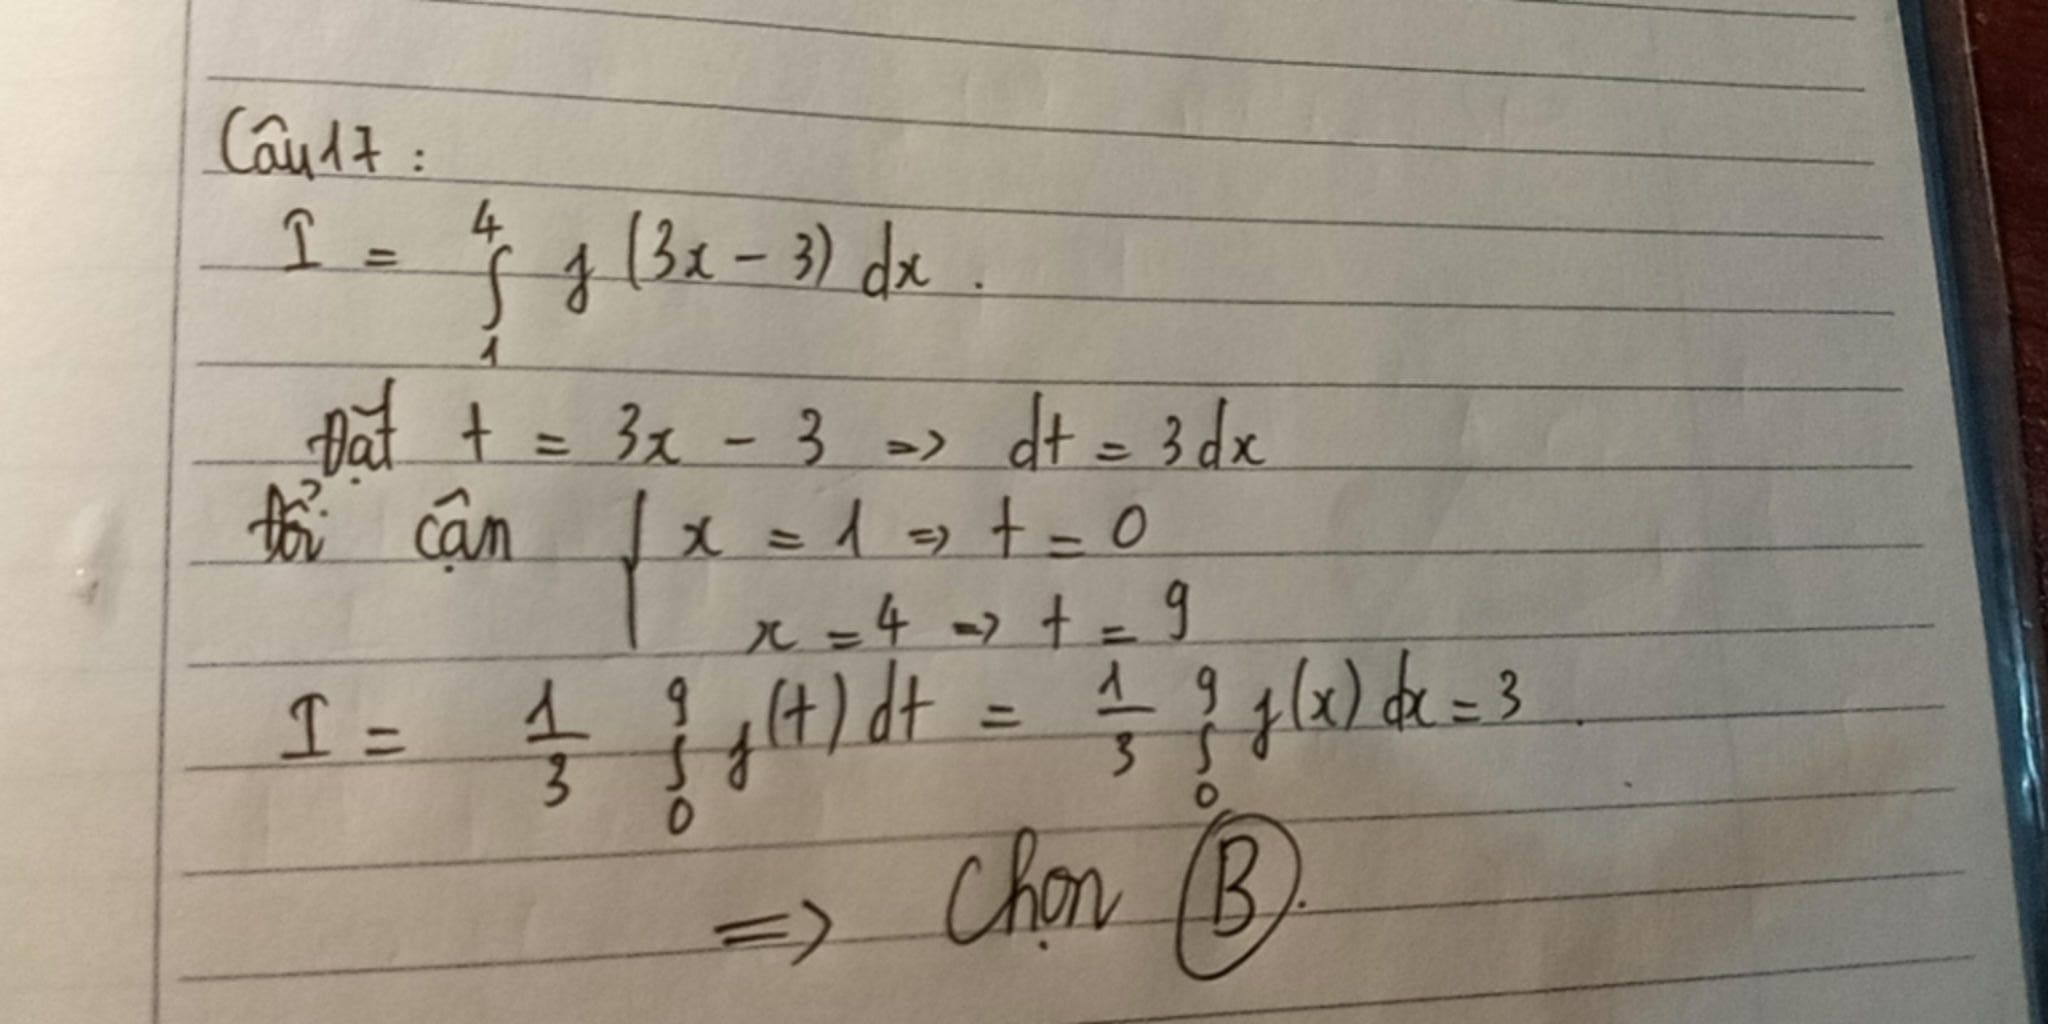 Câu 17 :
I = ∫₁⁴ f (3x - 3) dx .
Đặt t = 3x - 3 => dt = 3dx
Đổi cận { x = 1 => t = 0
x = 4 => t = 9
I = 1/3 ∫₀⁹ f(t) dt = 1/3 ∫₀⁹ f(x) dx = 3 .
=> Chọn B.